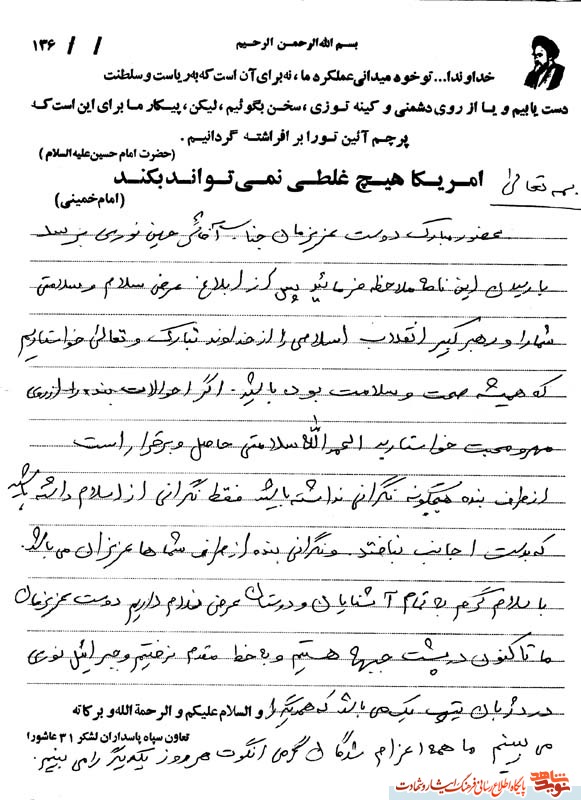 بسم الله الرحمن الرحیم
۱۳۶ / /
خداوندا... تو خود میدانی عملکرد ما، نه برای آن است که به ریاست و سلطنت
دست یابیم و یا از روی دشمنی و کینه توزی، سخن بگوئیم، لیکن، پیکار ما برای این است که
پرچم آئین تو را بر افراشته گردانیم.
(حضرت امام حسین علیه السلام)
بسمه تعالی
امریکا هیچ غلطی نمی تواند بکند
(امام خمینی)
حضور مبارک دوست عزیزمان جناب آقای نوری برسد
با رسیدن این نامه ملاحظه فرمائید پس از ابلاغ عرض سلام و سلامتی
شما را و رهبر کبیر انقلاب اسلامی را از خداوند تبارک و تعالی خواستاریم
که همیشه صحت و سلامت بوده باشید. اگر احوالات بنده را از روی
مهر و محبت خواستارید الحمدالله سلامتی حاصل و برقرار است
از طرف بنده هیچگونه نگرانی نداشته باشید فقط نگرانی از اسلام داشته باشید
که بدست اجانب نیافتد. و نگرانی بنده از طرف شما ها عزیزان می باشد.
با سلام گرم به تمام آشنایان و دوستان عرض سلام داریم دوست عزیزمان
ما تاکنون در پشت جبهه هستیم و به خط مقدم نرفتیم و جبرائیل نوری
در تیپ یک می باشد که همدیگر را
و السلام علیکم و الرحمة الله و برکاته
تعاون سپاه پاسداران لشکر ۳۱ عاشورا
می بینیم ما همه اعزام شدگان گرمی هر روز یکدیگر را می بینیم.
نوید شاهد
پایگاه اطلاع رسانی فرهنگ ایثار و شهادت